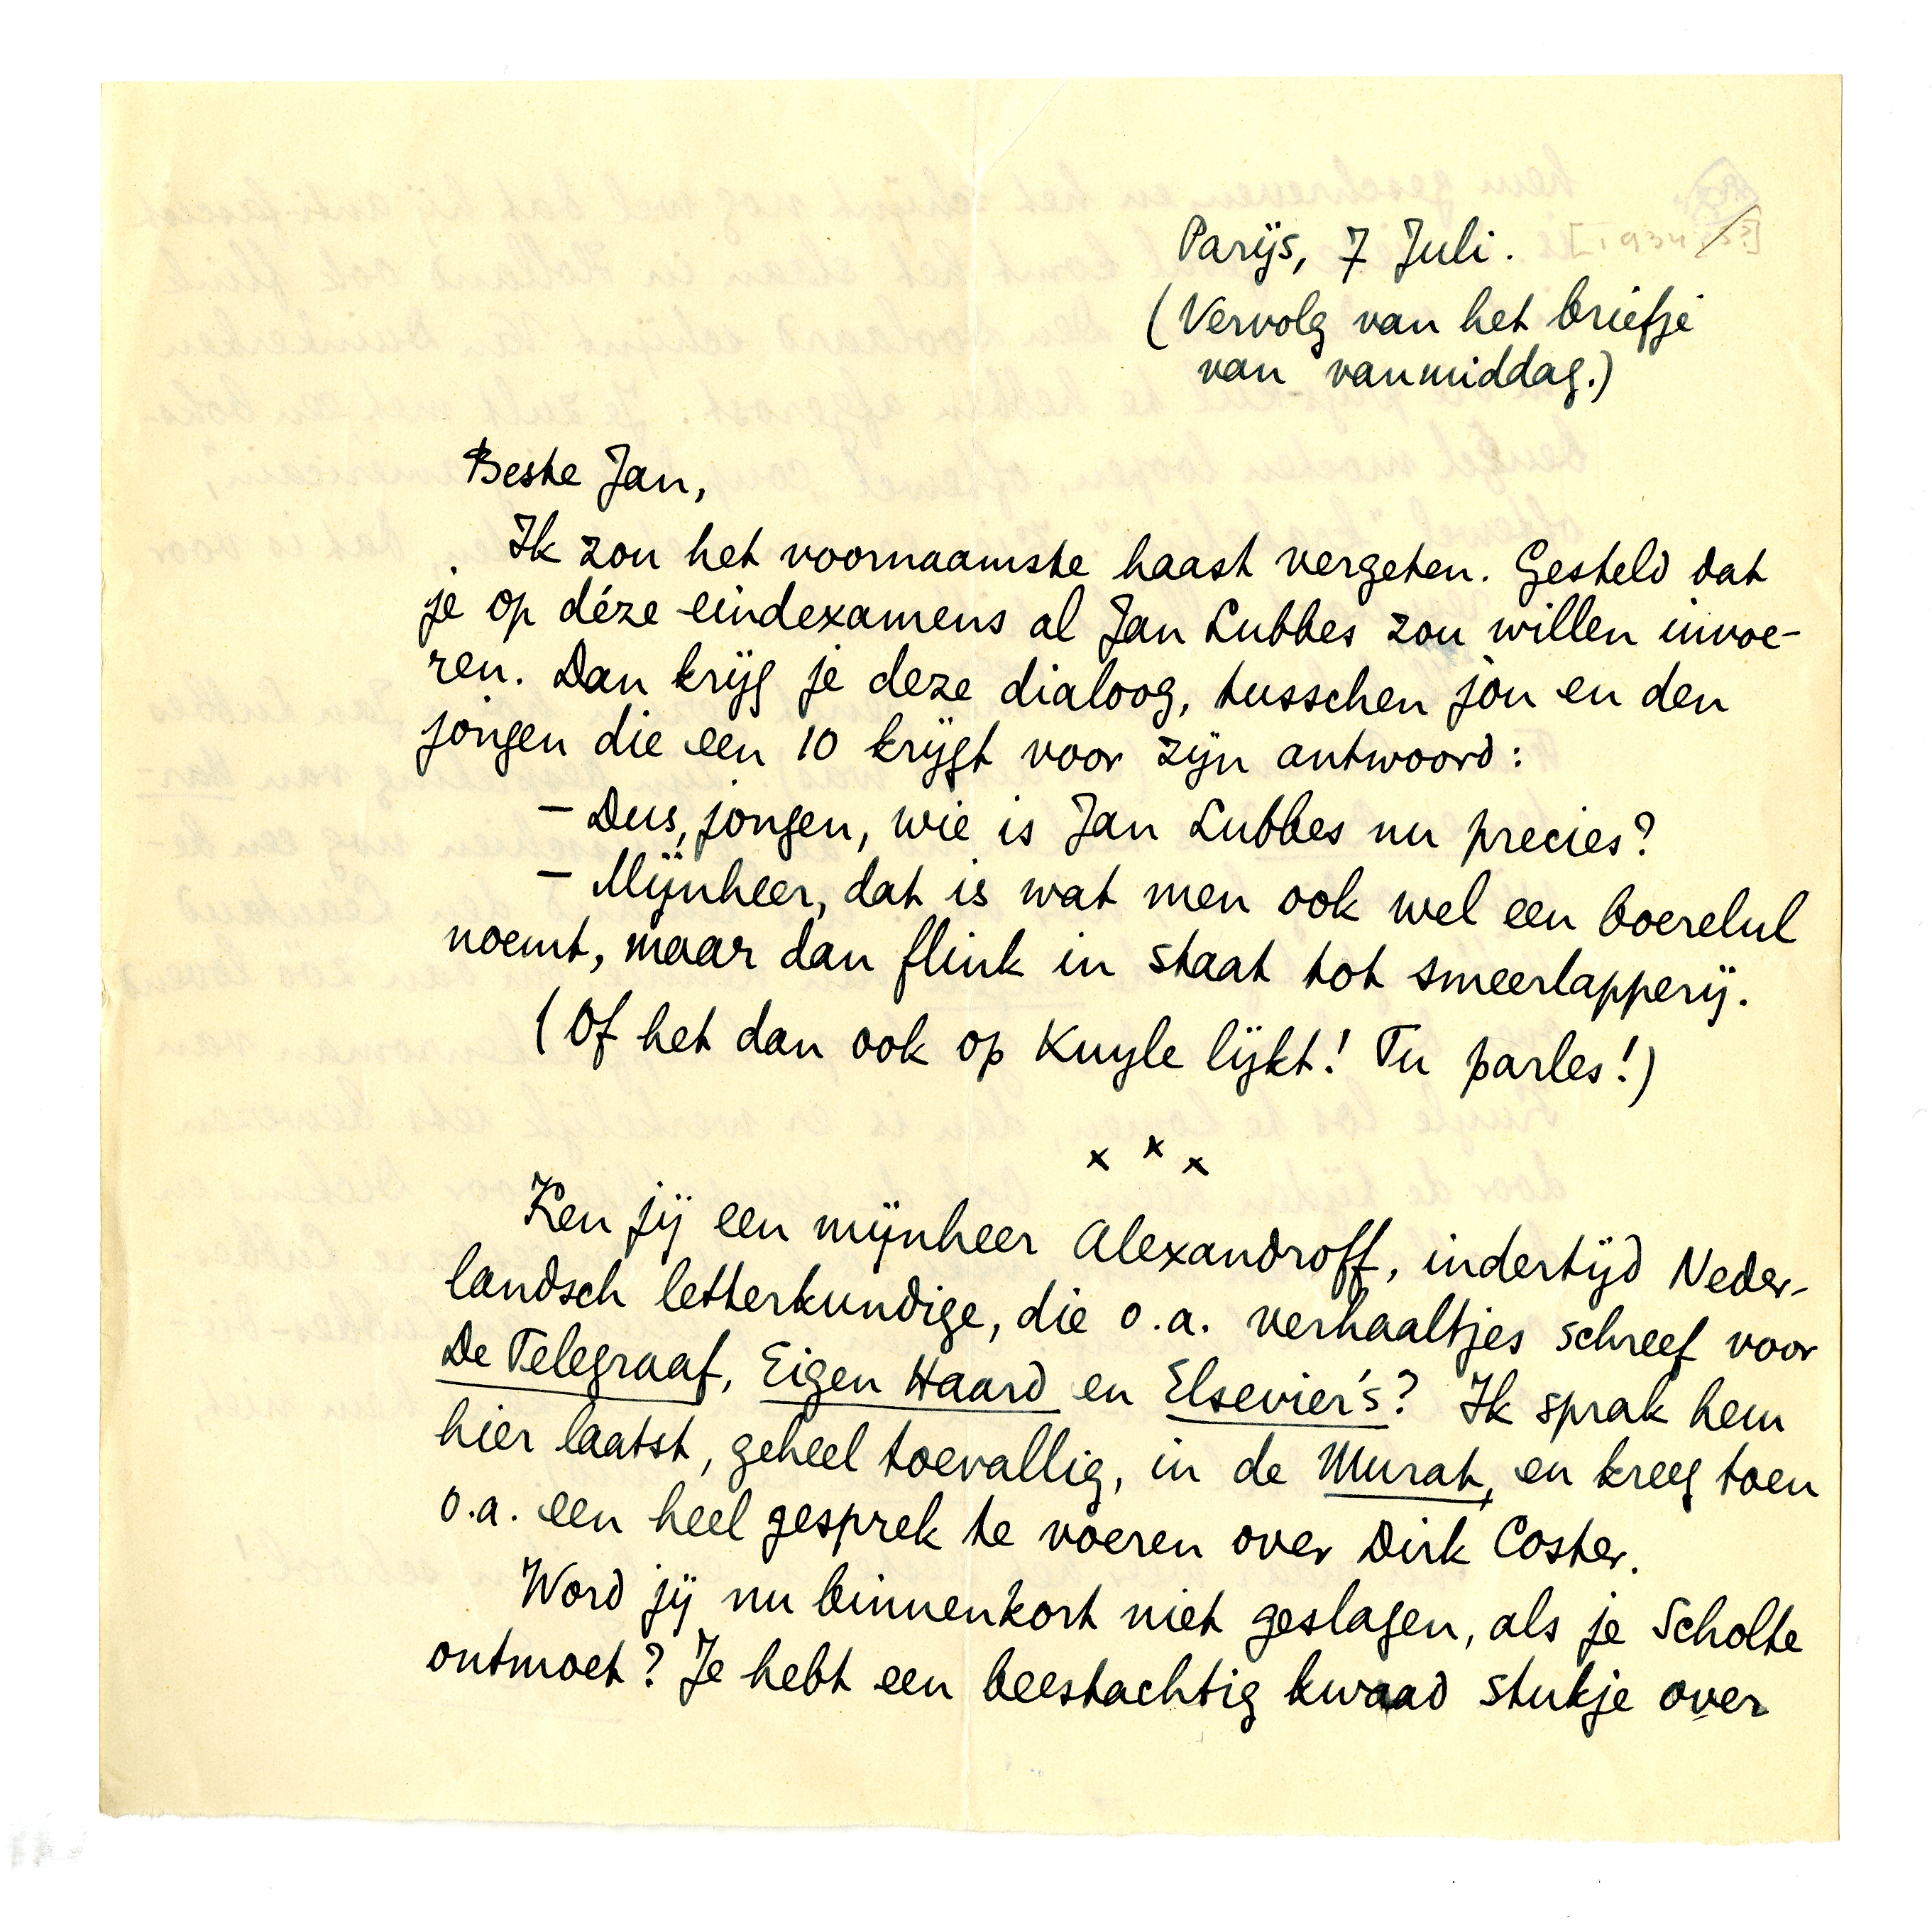 Parijs, 7 Juli.
(Vervolg van het briefje
van vanmiddag.)
Beste Jan,
Ik zou het voornaamste haast vergeten. Gesteld dat
je op déze eindexamens al Jan Lubbes zou willen invoe-
ren. Dan krijg je deze dialoog, tusschen jou en den
jongen die een 10 krijgt voor zijn antwoord:
— Dus, jongen, wie is Jan Lubbes nu precies?
— Mijnheer, dat is wat men ook wel een boerelul
noemt, maar dan flink in staat tot smeerlapperij.
(Of het dan ook op Kuyle lijkt! Tu parles!)
x x x
Ken jij een mijnheer Alexandroff, indertijd Neder-
landsch letterkundige, die o.a. verhaaltjes schreef voor
De Telegraaf, Eigen Haard en Elsevier's? Ik sprak hem
hier laatst, geheel toevallig, in de Murat, en kreeg toen
o.a. een heel gesprek te voeren over Dirk Coster.
Word jij nu binnenkort niet geslagen, als je Scholte
ontmoet? Je hebt een beestachtig kwaad stukje over